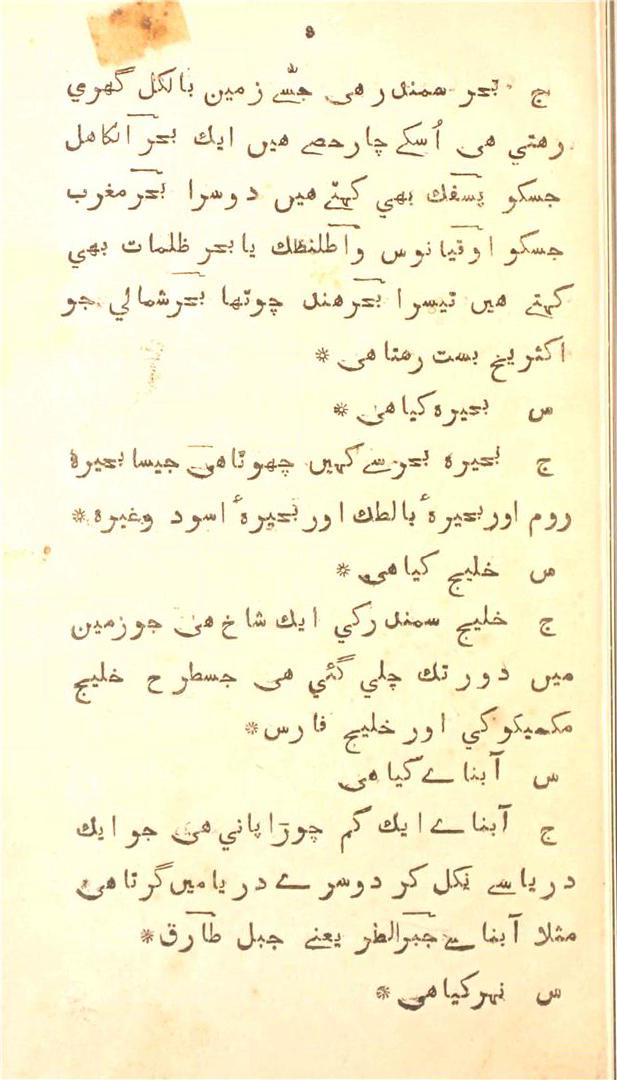 ج بحر سمندر هی جسّے زمین بالکل گهري
رهتي هی اُسکے چار حصے هیں ایك بحر آلکاهل
جسکو پسفك بهي کهتے هیں دوسرا بحر مغرب
جسکو اوقیانوس واطلنطك یا بحر ظلمات بهي
کهتے هیں تیسرا بحر هند چوتها بحر شمالي جو
اکثر یخ بست رهتا هی *
س بحیرہ کیا هی *
ج بحیرہ بحر سے کهیں چهوتا هی جیسا بحیرۂ
روم اور بحیرۂ بالطك اور بحیرۂ اسود وغیرہ *
س خلیج کیا هی *
ج خلیج سمندر کي ایك شاخ هی جو زمین
میں دور تك چلي گئي هی جسطرح خلیج
مکهیکو کي اور خلیج فارس *
س آبناے کیا هی
ج آبناے ایك کم چوڑا پاني هی جو ایك
دریا سے نکل کر دوسرے دریا میں گرتا هی
مثلا آبناے جبرالطر یعنے جبل طارق *
س نهر کیا هی *